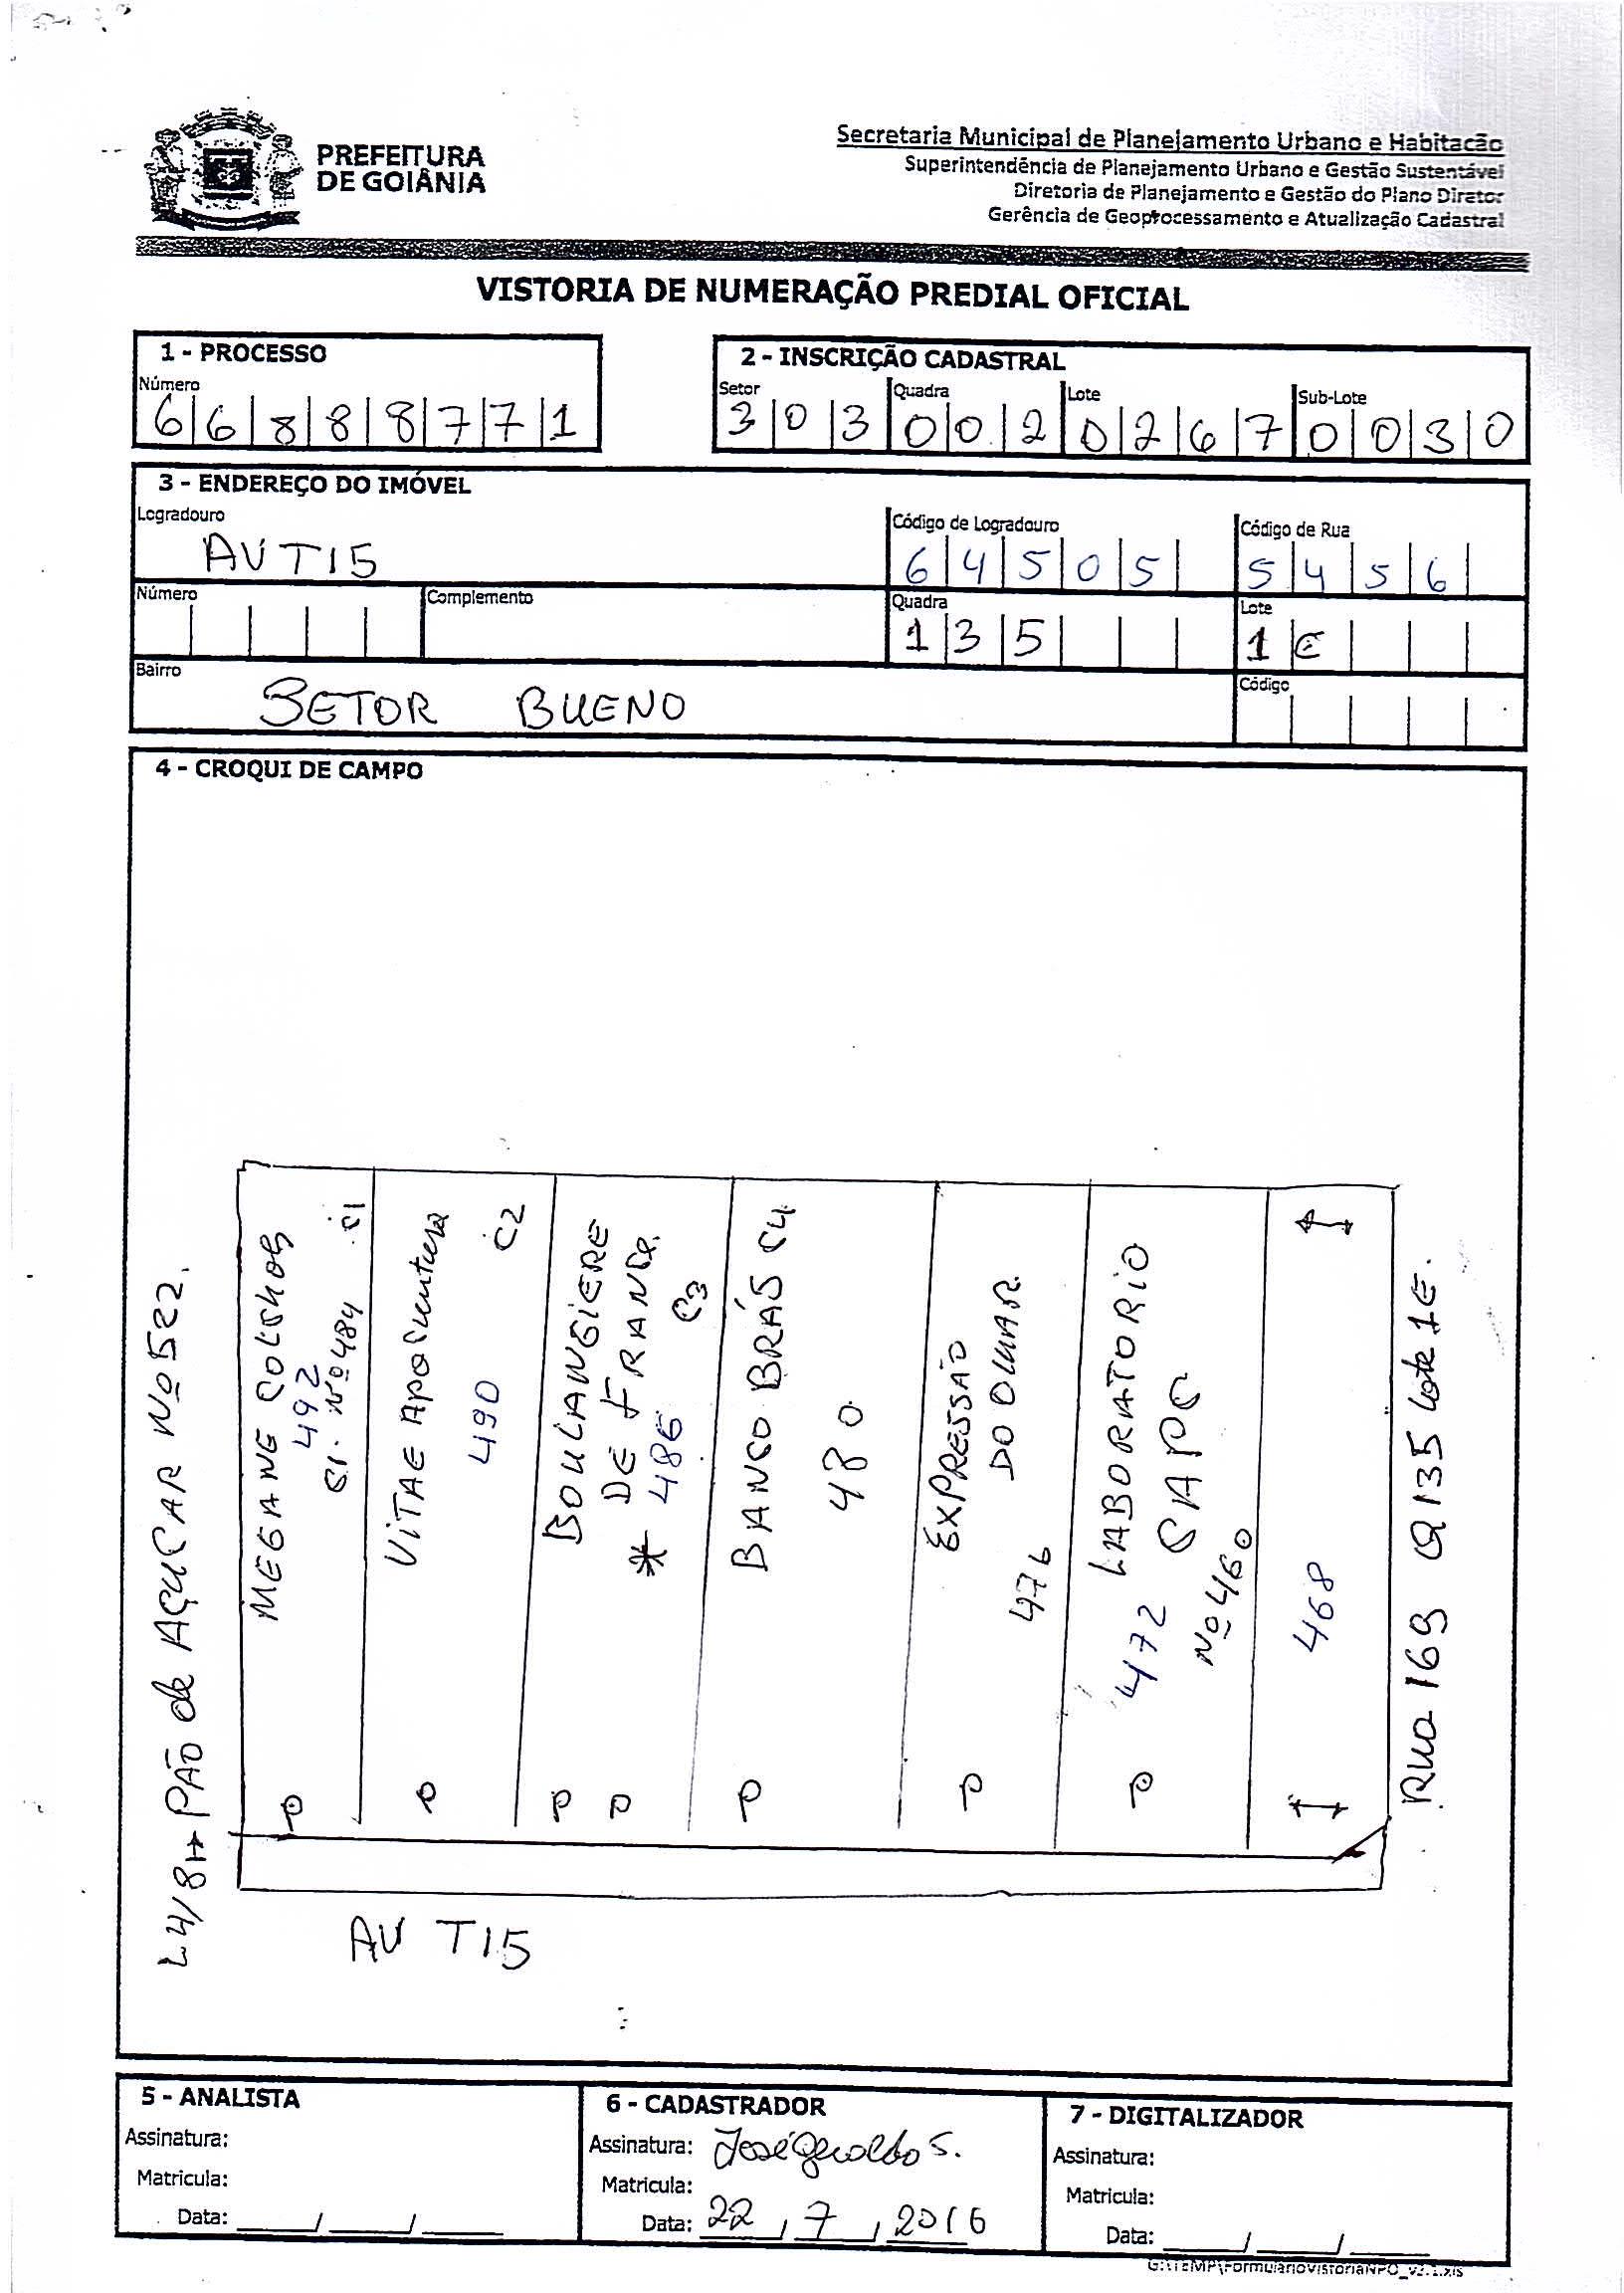 PREFEITURA
DE GOIÂNIA
Secretaria Municipal de Planejamento Urbano e Habitação
Superintendência de Planejamento Urbano e Gestão Sustentável
Diretoria de Planejamento e Gestão do Plano Diretor
Gerência de Geoprocessamento e Atualização Cadastral
VISTORIA DE NUMERAÇÃO PREDIAL OFICIAL
1 - PROCESSO
Número
66888771
2 - INSCRIÇÃO CADASTRAL
Setor Quadra Lote Sub-Lote
303 002 0267 0030
3 - ENDEREÇO DO IMÓVEL
Logradouro Código de Logradouro Código de Rua
AV T15 64505 5456
Número Complemento Quadra Lote
135 1E
Bairro Código
SETOR BUENO
4 - CROQUI DE CAMPO
L4/8 PÃO de AÇUCAR Nº 522.
MEGANE COLCHOES
492
C1. Nº 484 C1
VITAE Apocuntura C2
490
BOULANGIERE
DE FRANCE. C3
* 486
BANCO BRÁS C4
480
EXPRESSÃO
DO OLHAR
476
LABORATORIO
CAPC
472 Nº 460
468
Rua 169 Q135 Lote 1E.
P P P P P P P
AV T15
5 - ANALISTA
Assinatura:
Matricula:
Data: ____/____/____
6 - CADASTRADOR
Assinatura: José Geraldo S.
Matricula:
Data: 22 / 7 / 2016
7 - DIGITALIZADOR
Assinatura:
Matricula:
Data: ____/____/____
G:\TEMP\FormularioVistoriaNPO_v2.1.xls